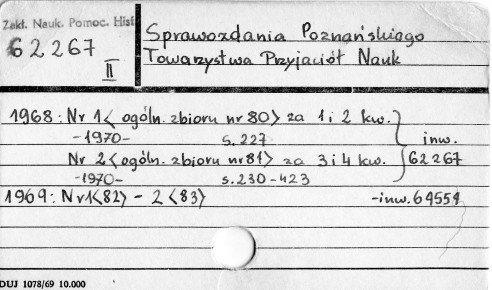 Zakł. Nauk. Pomoc. Hist
62267
II
Sprawozdania Poznańskiego
Towarzystwa Przyjaciół Nauk
1968: Nr 1< ogóln. zbioru nr 80> za 1 i 2 kw.
-1970- s. 227
inw.
Nr 2<ogóln. zbioru nr 81> za 3 i 4 kw. 62267
-1970- s. 230-423
1969: Nr1<82> - 2<83> -inw. 64554
DUJ 1078/69 10.000